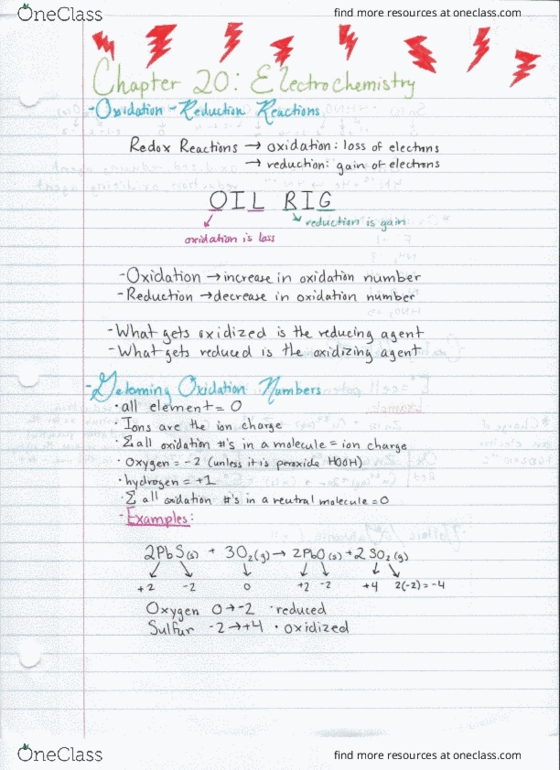 OneClass
find more resources at oneclass.com
Chapter 20: Electrochemistry
-Oxidation-Reduction Reactions
Redox Reactions → oxidation: loss of electrons
→ reduction: gain of electrons
OIL RIG
reduction is gain
oxidation is loss
-Oxidation → increase in oxidation number
-Reduction → decrease in oxidation number
-What gets oxidized is the reducing agent
-What gets reduced is the oxidizing agent
Oxidation Numbers
· all element = 0
· Ions are the ion charge
· Σ all oxidation #'s in a molecule = ion charge
· Oxygen = -2 (unless it is peroxide HOOH)
· hydrogen = +1
· Σ all oxidation #'s in a neutral molecule = 0
-Examples:
2PbS(s) + 3O2(g) → 2PbO(s) + 2SO2(g)
+2 -2 0 +2 -2 +4 2(-2) = -4
Oxygen 0→-2 · reduced
Sulfur -2→+4 · oxidized
OneClass
find more resources at oneclass.com